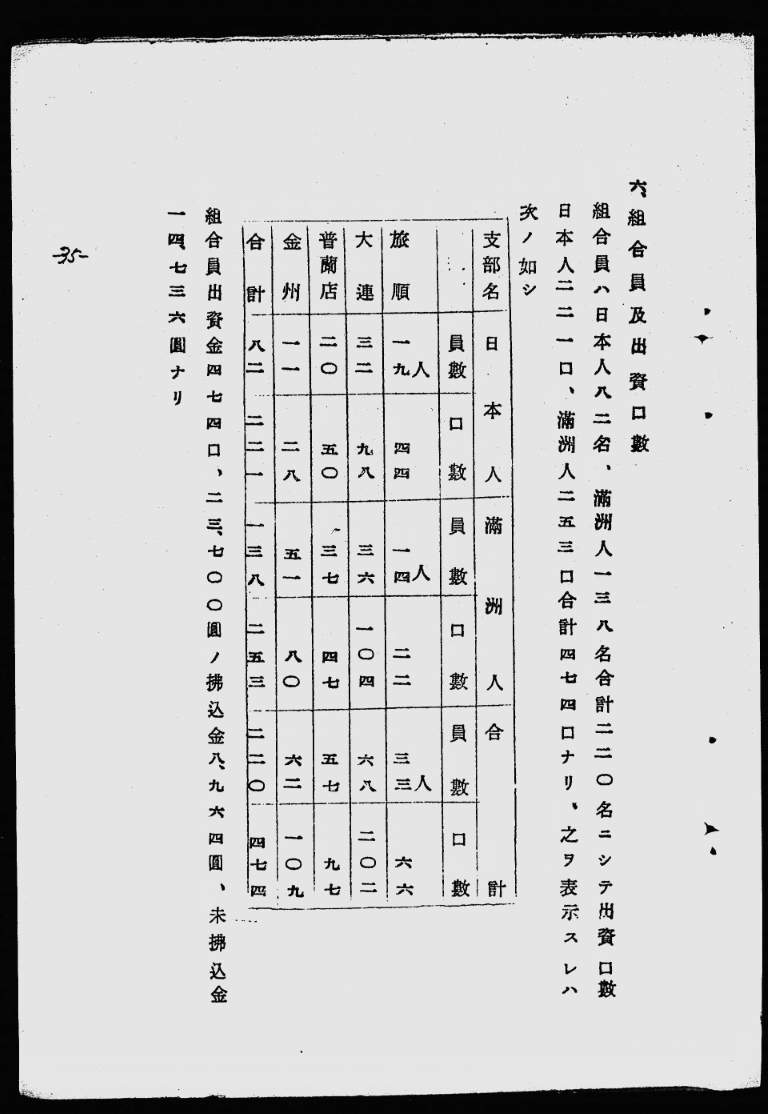 六、組合員及出資口數
組合員ハ日本人八二名、滿洲人一三八名合計二二〇名ニシテ出資口數
日本人二二一口、滿洲人二五三口合計四七四口ナリ、之ヲ表示スレハ
次ノ如シ
支部名 日本人 滿洲人 合計
員數 口數 員數 口數 員數 口數
旅順 一九人 四四 一四人 二二 三三人 六六
大連 三二 九八 三六 一〇四 六八 二〇二
普蘭店 二〇 五〇 三七 四七 五七 九七
金州 一一 二八 五一 八〇 六二 一〇九
合計 八二 二二一 一三八 二五三 二二〇 四七四
組合員出資金四七四口、二三、七〇〇圓ノ拂込金八、九六四圓、未拂込金
一四、七三六圓ナリ
-35-